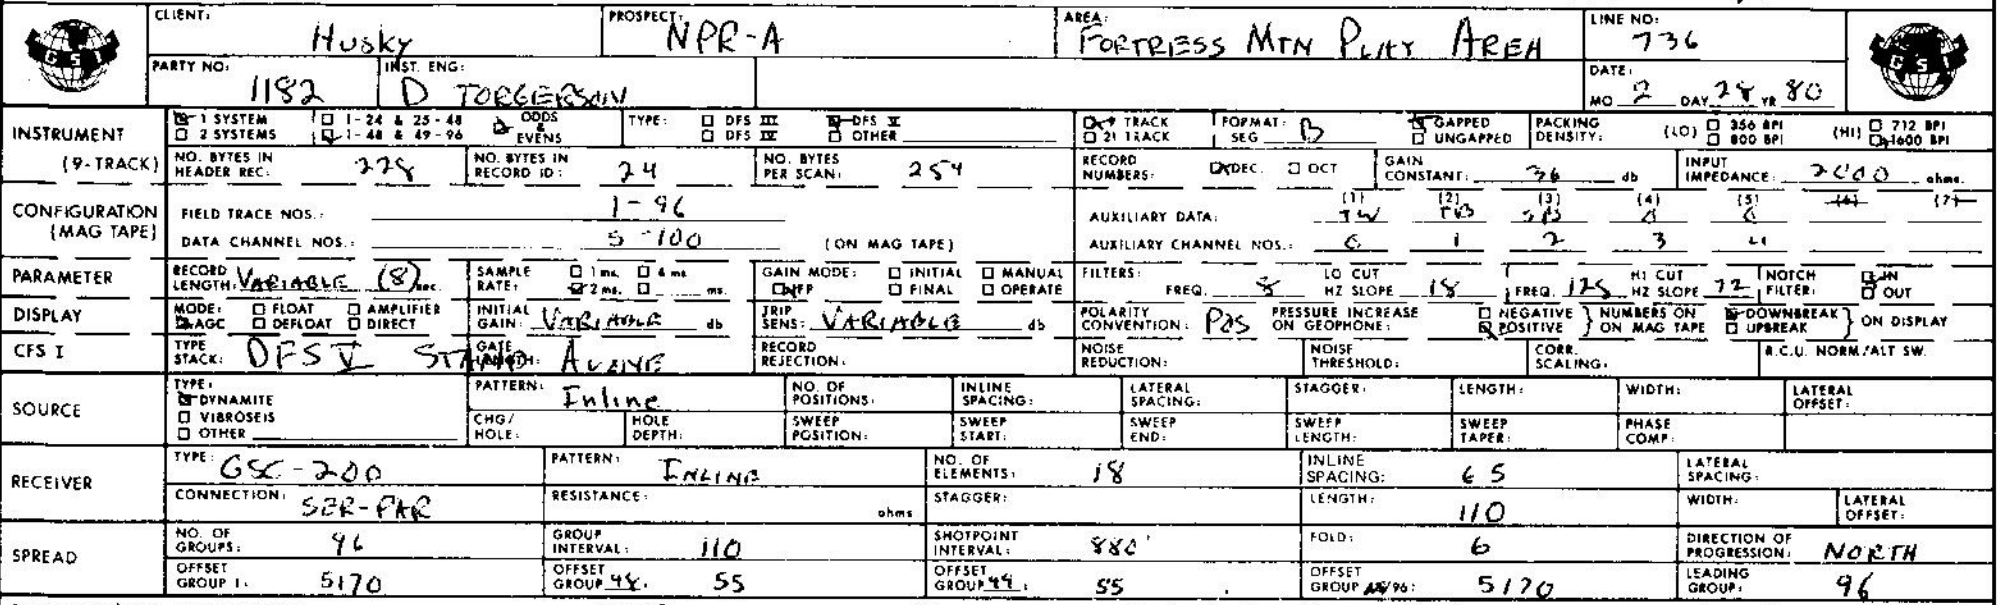 CLIENT: Husky PROSPECT: NPR-A AREA: FORTRESS MTN PLAY AREA LINE NO: 736
GSI GSI
PARTY NO: 1182 INST. ENG: D TORGERSON DATE: MO 2 DAY 28 YR 80
INSTRUMENT (9-TRACK)
1 SYSTEM 1-24 & 25-48 ODDS & EVENS TYPE: DFS III DFS V 9 TRACK FORMAT: GAPPED PACKING (LO) 356 BPI (HI) 712 BPI
2 SYSTEMS 1-48 & 49-96 DFS IV OTHER 21 TRACK SEG B UNGAPPED DENSITY: 800 BPI 1600 BPI
NO. BYTES IN HEADER REC: 228 NO. BYTES IN RECORD ID: 24 NO. BYTES PER SCAN: 254 RECORD NUMBERS: DEC. OCT GAIN CONSTANT: 36 db INPUT IMPEDANCE: 2000 ohms.
CONFIGURATION (MAG TAPE)
FIELD TRACE NOS.: 1-96 AUXILIARY DATA: (1) TW (2) TB (3) (4) (5) (6) (7)
DATA CHANNEL NOS.: 5-100 (ON MAG TAPE) AUXILIARY CHANNEL NOS.: 1 2 3 4
PARAMETER RECORD LENGTH: VARIABLE (8) sec. SAMPLE RATE: 1 ms. 4 ms 2 ms. ms. GAIN MODE: INITIAL MANUAL IFP FINAL OPERATE FILTERS: FREQ. 8 LO CUT HZ SLOPE 18 FREQ. 125 HI CUT HZ SLOPE 72 NOTCH FILTER: IN OUT
DISPLAY MODE: FLOAT AMPLIFIER AGC DEFLOAT DIRECT INITIAL GAIN: VARIABLE db TRIP SENS: VARIABLE db POLARITY CONVENTION: POS PRESSURE INCREASE ON GEOPHONE: NEGATIVE POSITIVE NUMBERS ON ON MAG TAPE DOWNBREAK UPBREAK ON DISPLAY
CFS I TYPE STACK: DFS V STAND ALONE GATE LENGTH: RECORD REJECTION: NOISE REDUCTION: NOISE THRESHOLD: CORR. SCALING: R.C.U. NORM./ALT SW.
SOURCE TYPE: DYNAMITE VIBROSEIS OTHER PATTERN: Inline NO. OF POSITIONS: INLINE SPACING: LATERAL SPACING: STAGGER: LENGTH: WIDTH: LATERAL OFFSET:
CHG/HOLE: HOLE DEPTH: SWEEP POSITION: SWEEP START: SWEEP END: SWEEP LENGTH: SWEEP TAPER: PHASE COMP:
RECEIVER TYPE: GSC-200 PATTERN: INLINE NO. OF ELEMENTS: 18 INLINE SPACING: 65 LATERAL SPACING:
CONNECTION: SER-PAR RESISTANCE: ohms STAGGER: LENGTH: 110 WIDTH: LATERAL OFFSET:
SPREAD NO. OF GROUPS: 96 GROUP INTERVAL: 110 SHOTPOINT INTERVAL: 880' FOLD: 6 DIRECTION OF PROGRESSION: NORTH
OFFSET GROUP 1: 5170 OFFSET GROUP 48: 55 OFFSET GROUP 49: 55 OFFSET GROUP 48/96: 5170 LEADING GROUP: 96